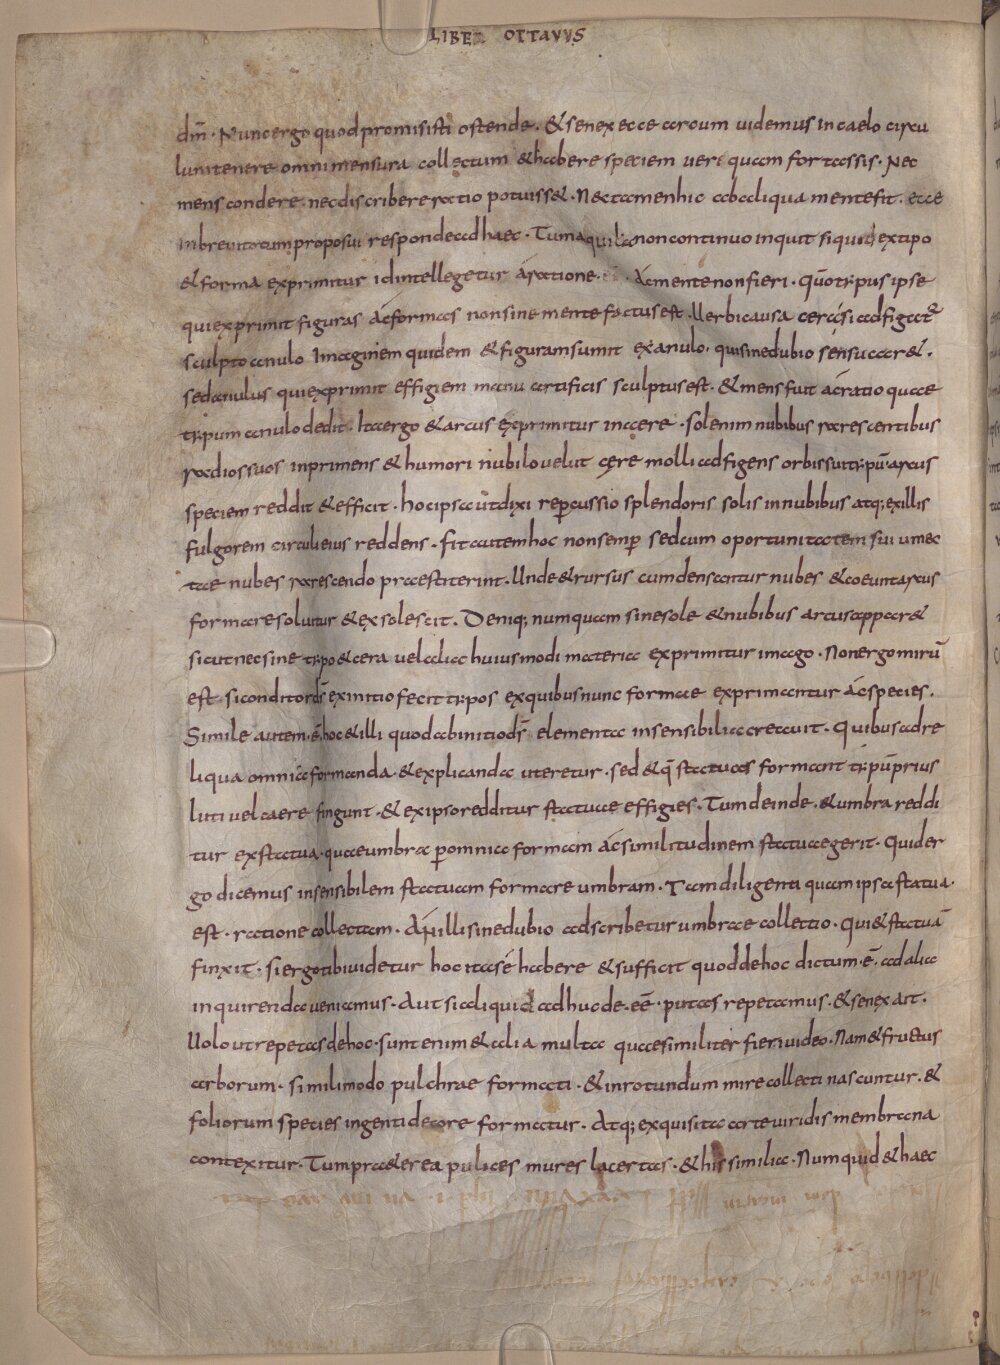 LIBER OTTAVVS
dm̄. Nunc ergo quod promisisti ostende. & senex ecce arcum uidemus in caelo circu
lum tenere omni mensura collectum & habere speciem ueri quam fortassis. Nec
mens condere nec discribere ratio potuiss&. Nec tamen hic ab aliqua mente fit. ecce
in breui totum proposui responde ad haec. Tum aquila non continuo inquit siquid ex tipo
& forma exprimitur id intellegetur á ratione. Ác mente non fieri. quō tẏpus ipse
qui exprimit figuras ác formas non sine mente factus est. Uerbi causa cera si adfigat
sculpto anulo Imaginem quidem & figuram sumit ex anulo. qui sine dubio sensu car&.
sed anulus qui exprimit effigiem manu artificis sculptus est. & mens fuit ác ratio quae
tẏpum anulo dedit. Ita ergo & arcus exprimitur in aere. sol enim nubibus rarescentibus
radios suos inprimens & humori nubilo uelut cęre molli adfigens orbis sui tẏpū arcus
speciem reddit & efficit. hoc ipsa ut dixi repercussio splendoris solis in nubibus atq; ex illis
fulgorem circuli eius reddens. fit autem hoc non semꝑ sed cum oportunitatem sui umec
tae nubes rarescendo praestiterint. Unde & rursus cum densantur nubes & coeunt arcus
forma resoluitur & exsolescit. Deniq; numquam sine sole & nubibus arcus appar&
sicut nec sine tẏpo & cera uel alia huiusmodi materia exprimitur imago. Non ergo mirū
est. si conditor ds̄ ex initio fecit tẏpos ex quibus nunc formae exprimantur ác species.
Simile autem. ē hoc & illi quod ab initio ds̄ elementa insensibilia creauit. Quibus ad re
liqua omnia formanda. & explicanda uteretur. sed & q̄ statuas formant tẏpū prius
luti uel caere fingunt. & ex ipso redditur statuae effigies. Tum deinde. & umbra reddi
tur ex statua. quae umbra ꝑ omnia formam ác similitudinem statuae gerit. Quid er
go dicemus insensibilem statuam formare umbram. Tam diligenti quam ipsa statua.
est. ratione collectam. An illi sine dubio adscribetur umbrae collectio. Qui & statuā
finxit. si ergo tibi uidetur hoc ita sé habere & sufficit quod de hoc dictum. ē. ad alia
inquirenda ueniamus. Aut si aliquid adhuc de. eē. putas repetamus. & senex ait.
Uolo ut repetas de hoc. sunt enim & alia multa quae similiter fieri uideo. Nam & fructus
arborum. simili modo pulchrae formati. & in rotundum mire collecti nascuntur. &
foliorum species ingenti decore formatur. Atq; exquisita arte uiridis membrana
contexitur. Tum praeterea pulices mures lacertas. & his similia. Numquid & haec